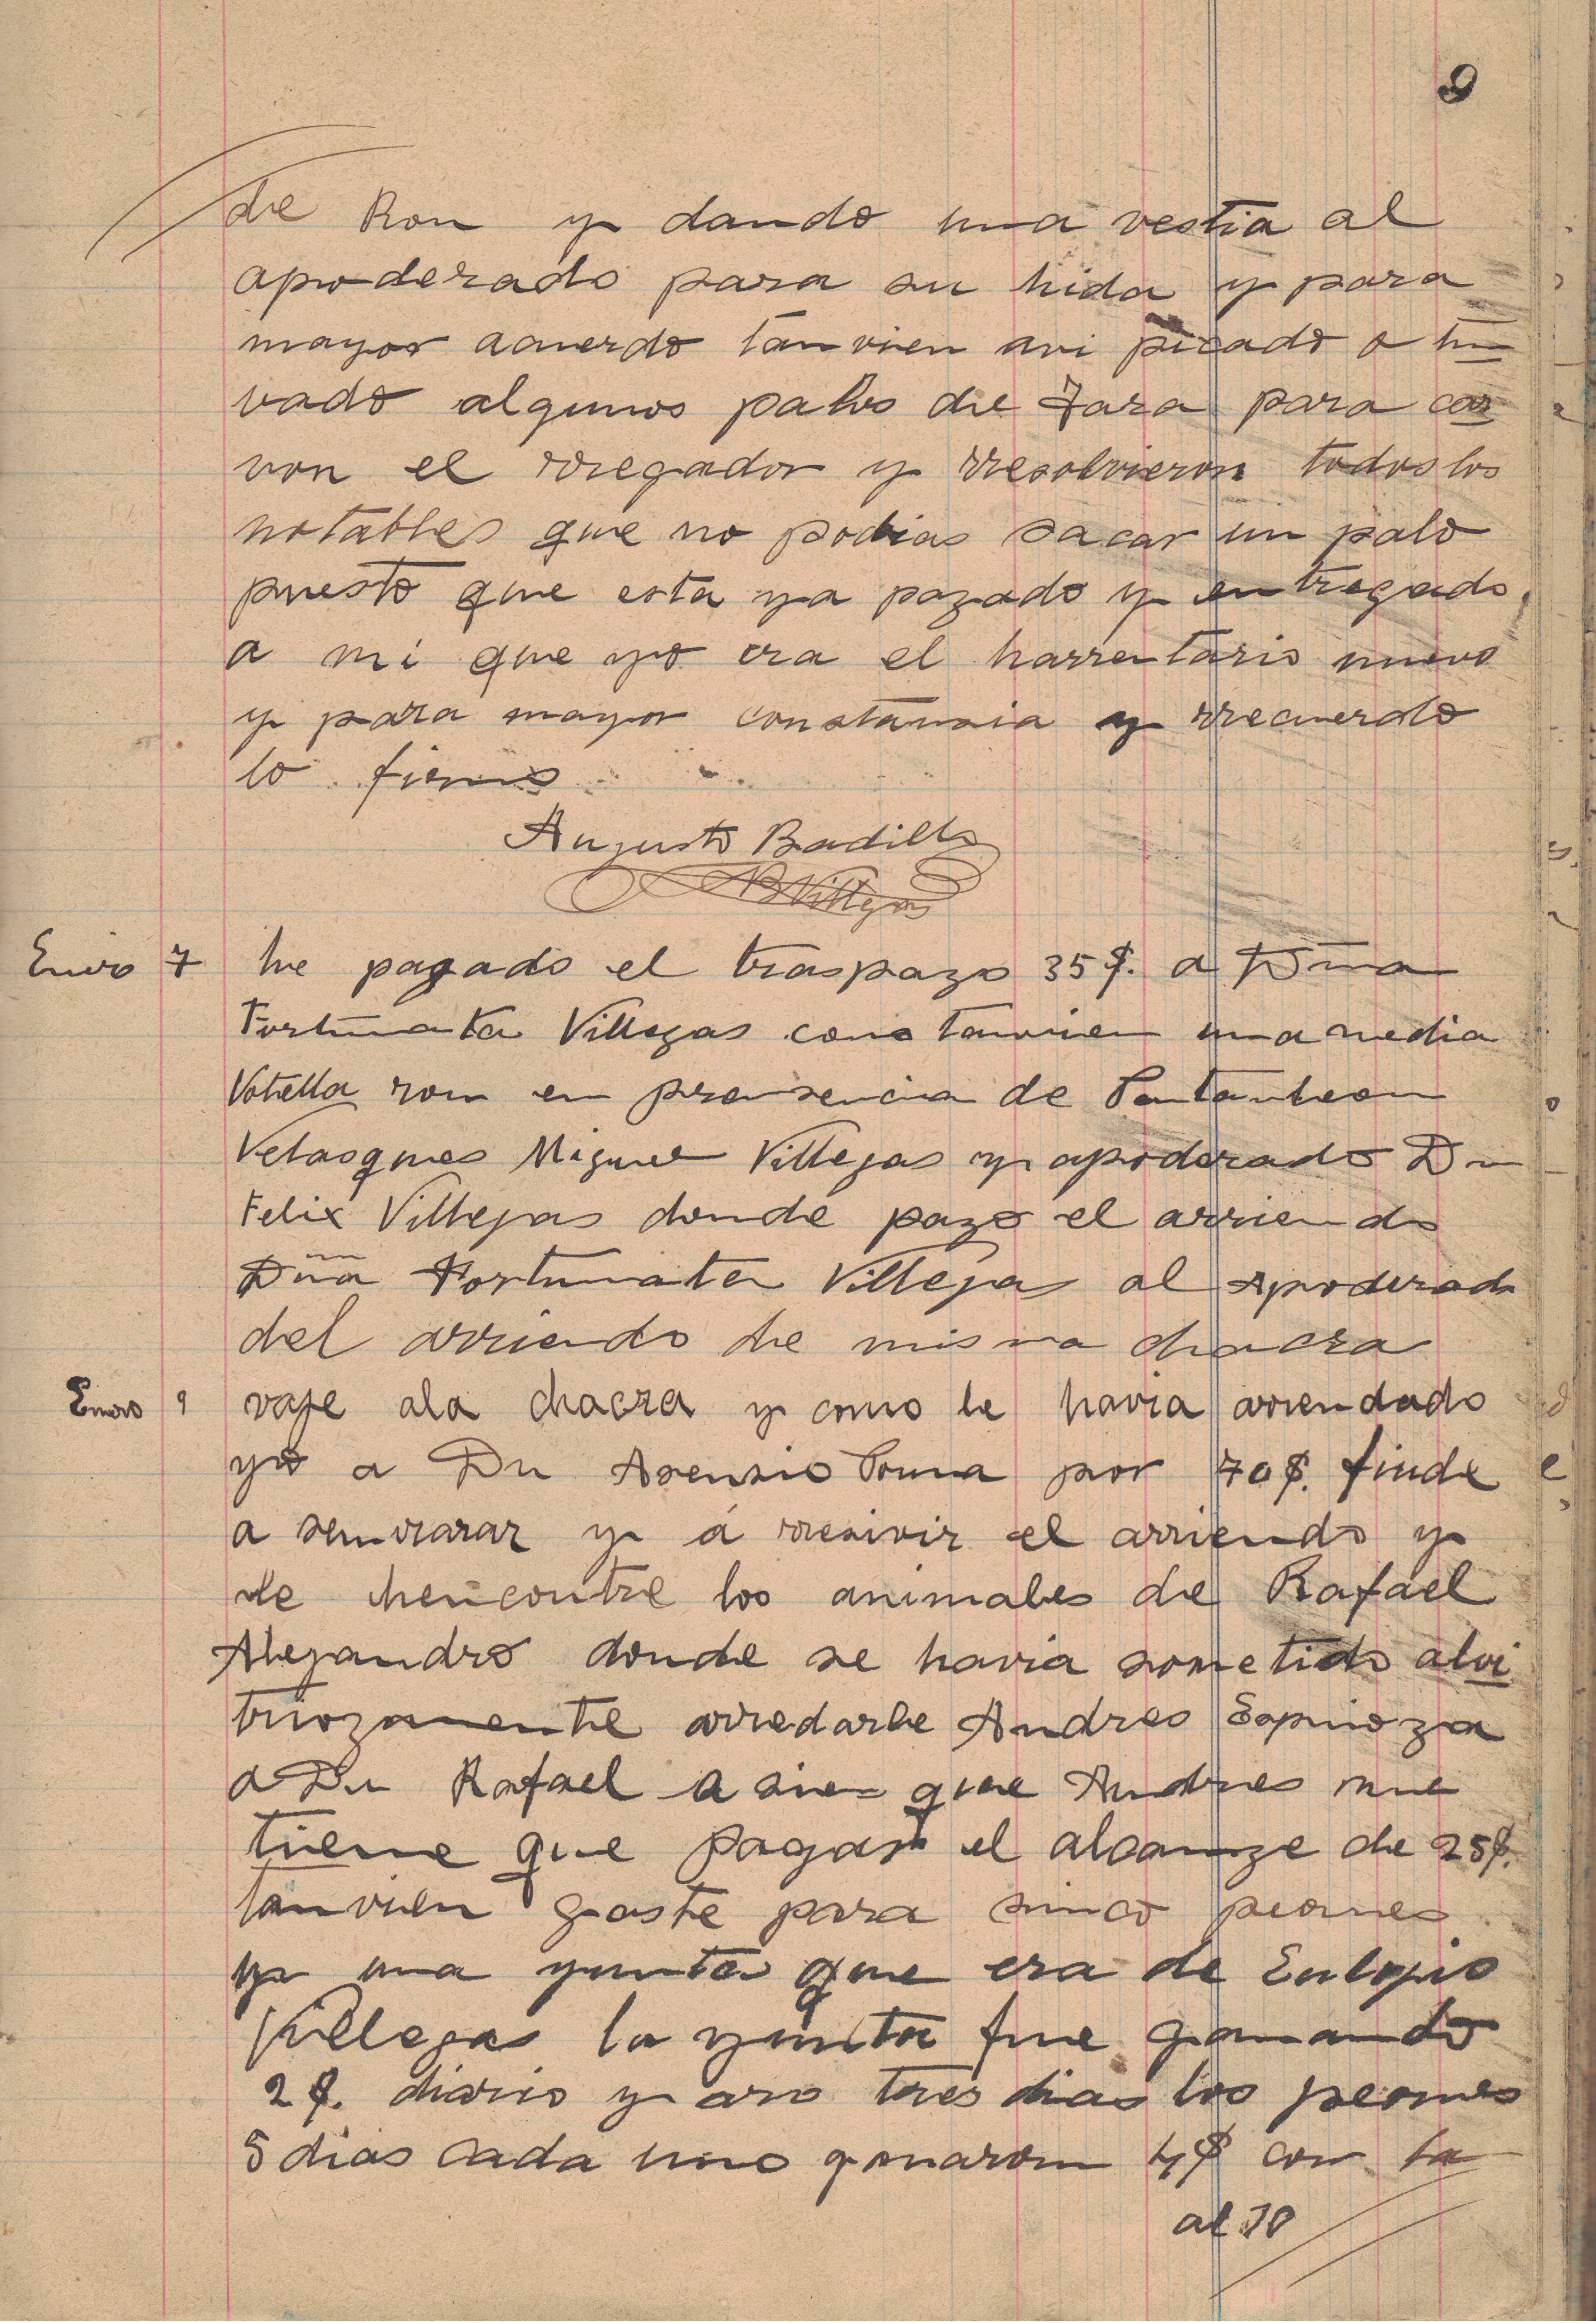 9
de Ron y dando una vestia al
apoderado para su hida y para
mayor acuerdo tanvien avi picado o tun
vado algunos palos de Tara para car
von el rregador y rresolvieron todos los
notables que no podias sacar un palo
puesto que esta ya pazado y entregado
a mi que yo era el harrentario nuevo
y para mayor constansia y rrecuerdo
lo firmo
Augusto Badillo
ABVillegas
Enero 7 he pagado el traspazo 35$. a Dña
Fortunata Villegas como tanvien una media
Votella ron en presencia de Pantanleon
Velasques Miguel Villegas y apoderado Dn
Felix Villegas donde pazo el arriendo
Dña Fortunata Villegas al Apoderado
del arriendo de misma chacra
Enero 9 vaje ala chacra y como le havia arrendado
yo a Dn Asensio Poma por 70$. finde
a semvrarar y á rresivir el arriendo y
le hencontre los animales de Rafael
Alejandro donde se havia sometido alvi
triozamente arredarle Andres Espinoza
a Dn Rafael a sien que Andres me
tiene que pagar el alcanze de 25$.
tanvien gaste para sinco peones
y una yunta que era de Eulojio
Villegas la yunta fue ganando
2$. diario y aro tres dias los peones
5 dias cada uno ganaron 4$ con la
al 10